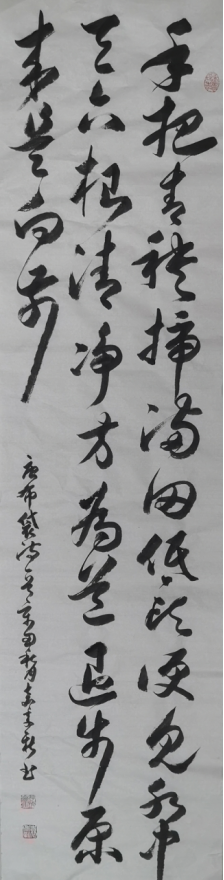 手把青秧插滿田低頭便見水中
天六根清淨方為道退步原
來是向前
唐布袋詩
書